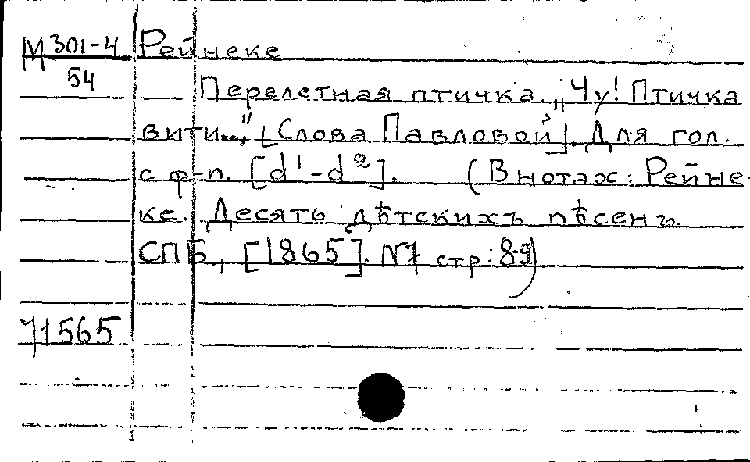 М 301-4 Рейнеке
54
Перелетная птичка. „Чу! Птичка
вити...", [Слова Павловой]. Для гол.
с ф-п. [d¹-d²]. (В нотах: Рейне-
ке. Десять дѣтскихъ пѣсенъ.
СПБ, [1865]. №1 стр: 89)
71565